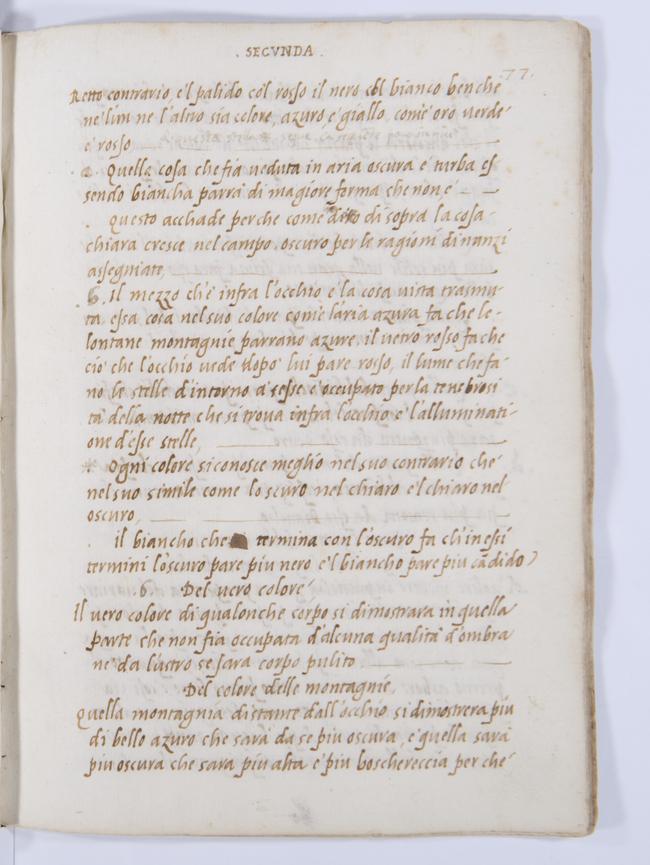 . SECVNDA .
77.
Retto contrario, e'l palido col rosso il nero col bianco ben che
ne l'un ne l'altro sia colore, azuro, e' giallo come oro verde
e' rosso
Quella cosa che fia veduta in aria oscura e' turba es
sendo biancha parra di magiore forma che non e'
. Questo acchade perche come dito di sopra la cosa
chiara cresce nel campo oscuro per le ragioni dinanzi
assegniate,
. Il mezzo ch'è infra l'occhio e la cosa vista trasmu
ta essa cosa nel suo colore come l'aria azura fa che le
lontane montagnie parrano azure, il vetro rosso fa che
ciò che l'occhio vede dopo lui pare rosso, il lume che fa
no le stelle d'intorno a' sesse e' occupato per la tenebrosi
tà della notte che si trova infra l'occhio e l'alluminati
one d'esse stelle,
* Ogni colore si conosce meglio nel suo contrario che
nel suo simile come lo scuro nel chiaro e'l chiaro nel
oscuro,
. il biancho che termina con l'oscuro fa ch'in essi
termini l'oscuro pare piu nero e'l biancho pare piu cãdido
.6. Del vero colore
Il vero colore di qualonche corpo si dimostrara in quella
parte che non fia occupata d'alcuna qualità d'ombra
ne da lustro se sara corpo pulito
Del colore delle montagnie,
Quella montagnia distante dall'occhio si dimostrera piu
di bello azuro che sarà da se piu oscura, e' quella sarà
piu oscura che sara piu alta e' piu boschereccia per che